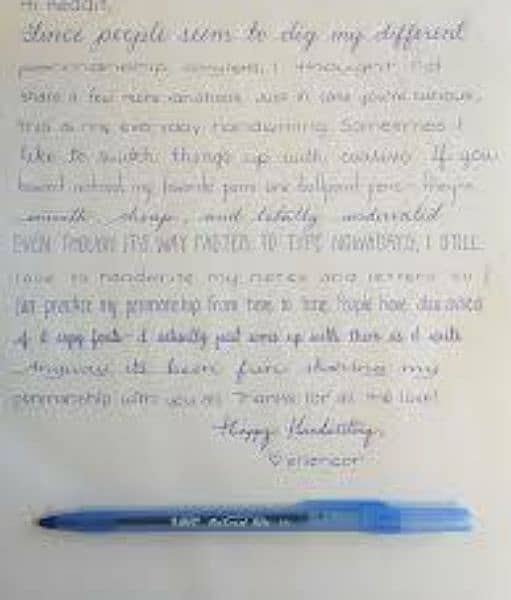 Hi Reddit,
Since people seem to dig my different
penmanship I thought I'd
share a few more variations just in case you're curious.
this is my everyday handwriting. Sometimes I
like to switch things up with cursive. If you
haven't noticed, my favorite pens are ballpoint pens - they're
smooth, cheap, and totally underrated
EVEN THOUGH IT'S WAY FASTER TO TYPE NOWADAYS, I STILL
love to handwrite my notes and letters so I
practice my penmanship from time to time. People have
if I copy fonts - I actually just come up with them as I write
Anyways it's been fun sharing my
penmanship with you all. Thanks for all the love!
Happy Handwriting,